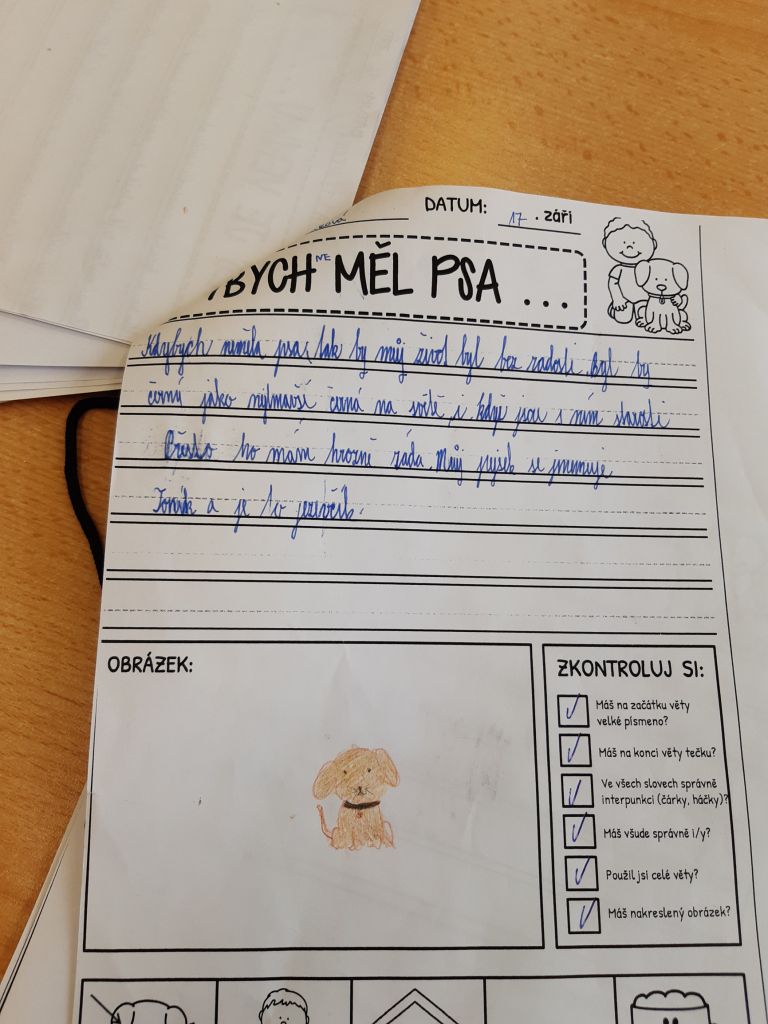 DATUM: 17. září
YBYCH NE MĚL PSA ...
Kdybych neměla psa, tak by můj život byl bez radosti. Byl by
černý jako nejtmavší černá na světě, i když jsou s ním starosti
Přesto ho mám hrozně ráda. Můj pejsek se jmenuje
Toník a je to jezevčík.
OBRÁZEK:
ZKONTROLUJ SI:
Máš na začátku věty
velké písmeno?
Máš na konci věty tečku?
Ve všech slovech správně
interpunkci (čárky, háčky)?
Máš všude správně i/y?
Použil jsi celé věty?
Máš nakreslený obrázek?